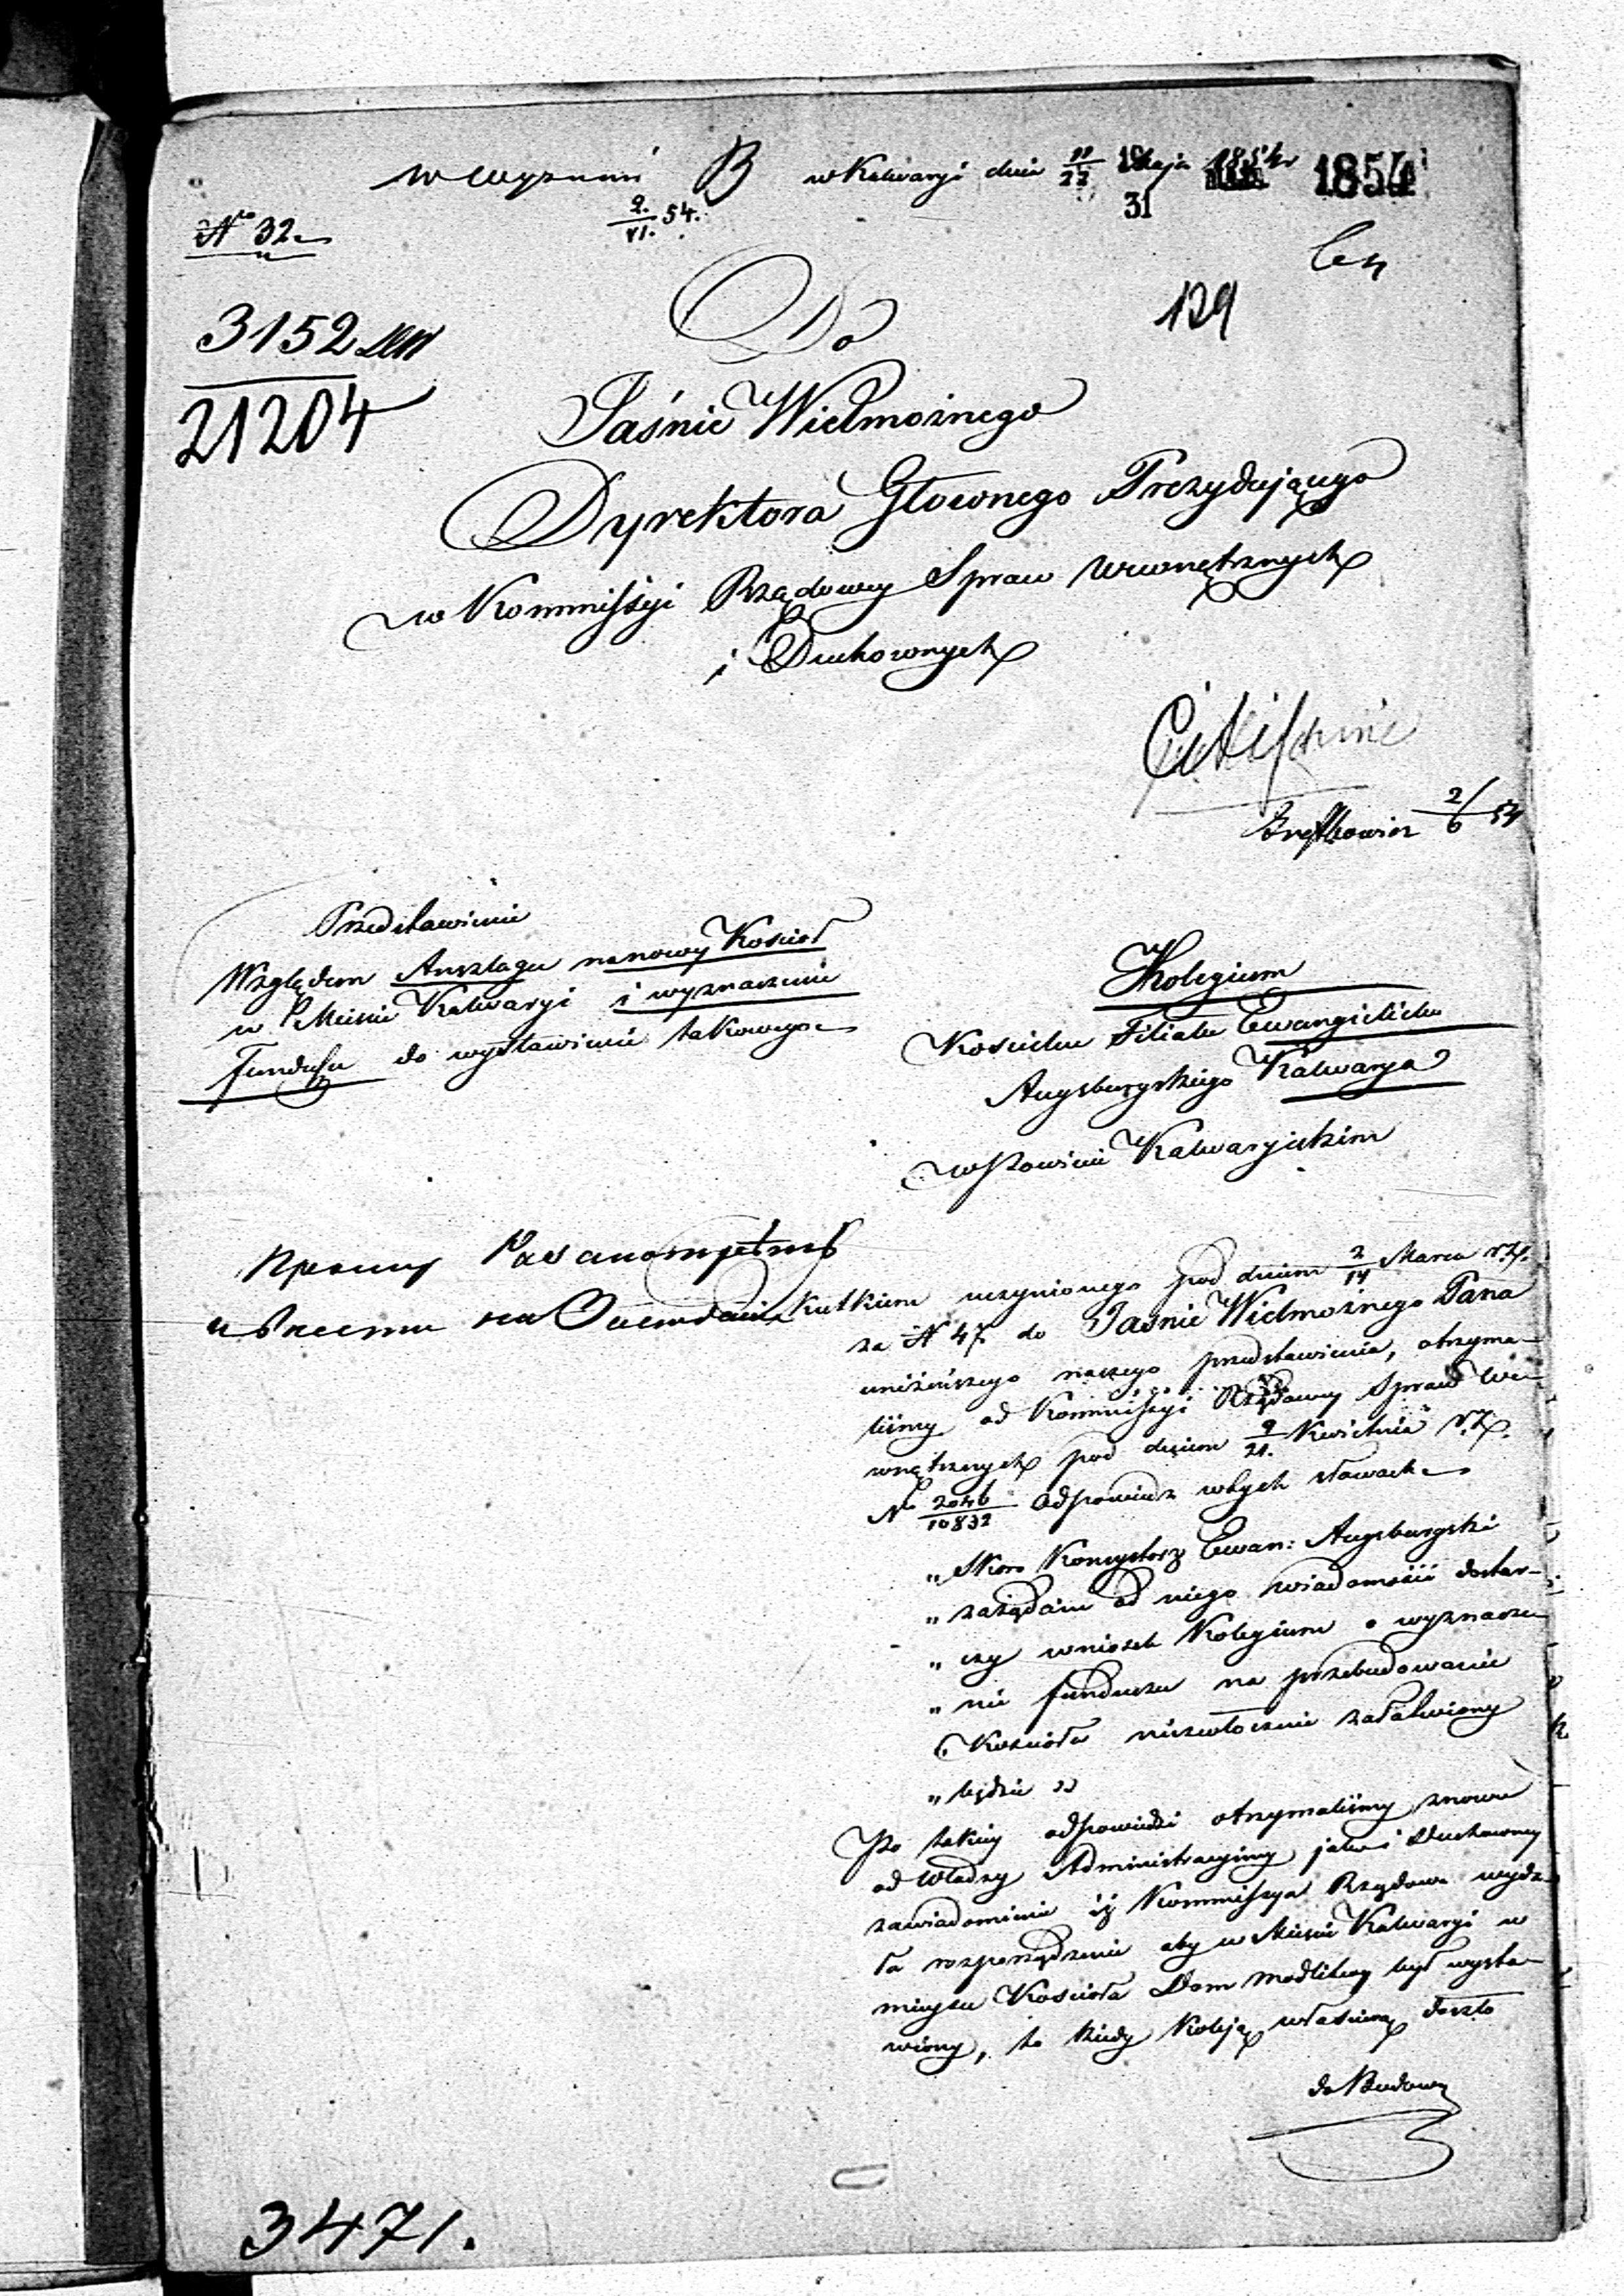 w Kalwaryi dnia 11/23 Maja 1854 r
1854
31
2./VI. 54.
No 32
129
3152
21204
Do
Jaśnie Wielmożnego
Dyrektora Głownego Prezydującego
w Kommissyi Rządowey Spraw Wewnętrznych
i Duchownych
2/6 54
Przedstawienie
Względem Anszlagu na nowy Kościoł
w Mieście Kalwaryi i wyznaczenie
funduszu do wystawienia takowego
Kolegium
Kościoła Filiału Ewangielicko
Augsburgskiego Kalwarya
w Powiecie Kalwaryiskim
Skutkiem uczynionego pod dniem 2/14 Marca r.z.
za N 47 do Jaśnie Wielmożnego Pana
uniżeńszego naszego przedstawienia, otrzyma-
liśmy od Kommissyi Rządowey Spraw We-
wnętrznych pod dniem 9/21. Kwietnia r.z.
No 2046/10832 odpowiedz w tych słowach
„ Skoro Konsystorz Ewan: Augsburgski
„ zażądane od niego wiadomości dostar-
„ czy wniosek Kolegium o wyznacze-
„ nie funduszu na przebudowanie
„ Kościoła niezwłocznie załatwiony
„ będzie "
Po takiey odpowiedzi otrzymaliśmy znowu
od Władzy Administracyiney jako i Duchowney
zawiadomienie iż Kommissya Rządowa wyda-
ła rozporządzenie aby w Mieście Kalwaryi w
mieysce Kościoła Dom modlitwy był wysta-
wiony, to kiedy koleją właściwą doszło
do Budowy
3471.